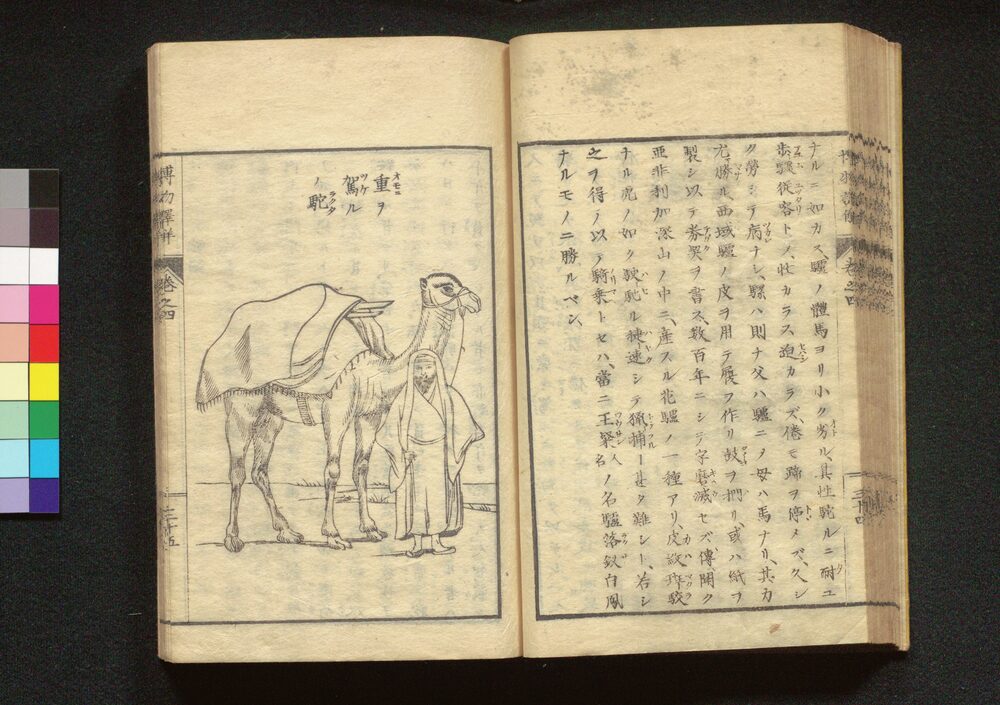 ナルニ如カス、驢ノ體馬ヨリ小ク劣ル、其性駝ルニ耐ユ
歩驟從容トメ、壮カラス迫カラズ、倦モ蹄ヲ停メズ、久シ
ク勞シテ病ナシ、騾ハ則チ父ハ驢ニノ母ハ馬ナリ、其力
尤勝ル西域驢ノ皮ヲ用テ履フ作リ鼓ヲ捫リ、或ハ紙ヲ
製シ以テ券契ヲ書ス、数百年ニシテ字磨滅セズ、傳聞ク
亞非利加深山ノ中ニ、産スル花驢ノ一種アリ、皮紋
ナル虎ノ如ク駛馳ル捷速シテ獵捕ー甚タ難シト、若シ
之ヲ得テ以テ騎乗トセハ、當ニ王粲人ノ名驢落釵白鳳
ナルモノニ勝ルベシ、
三十四
重ヲ
駕ル
ノ駝
博物釋
卷之四
三十五